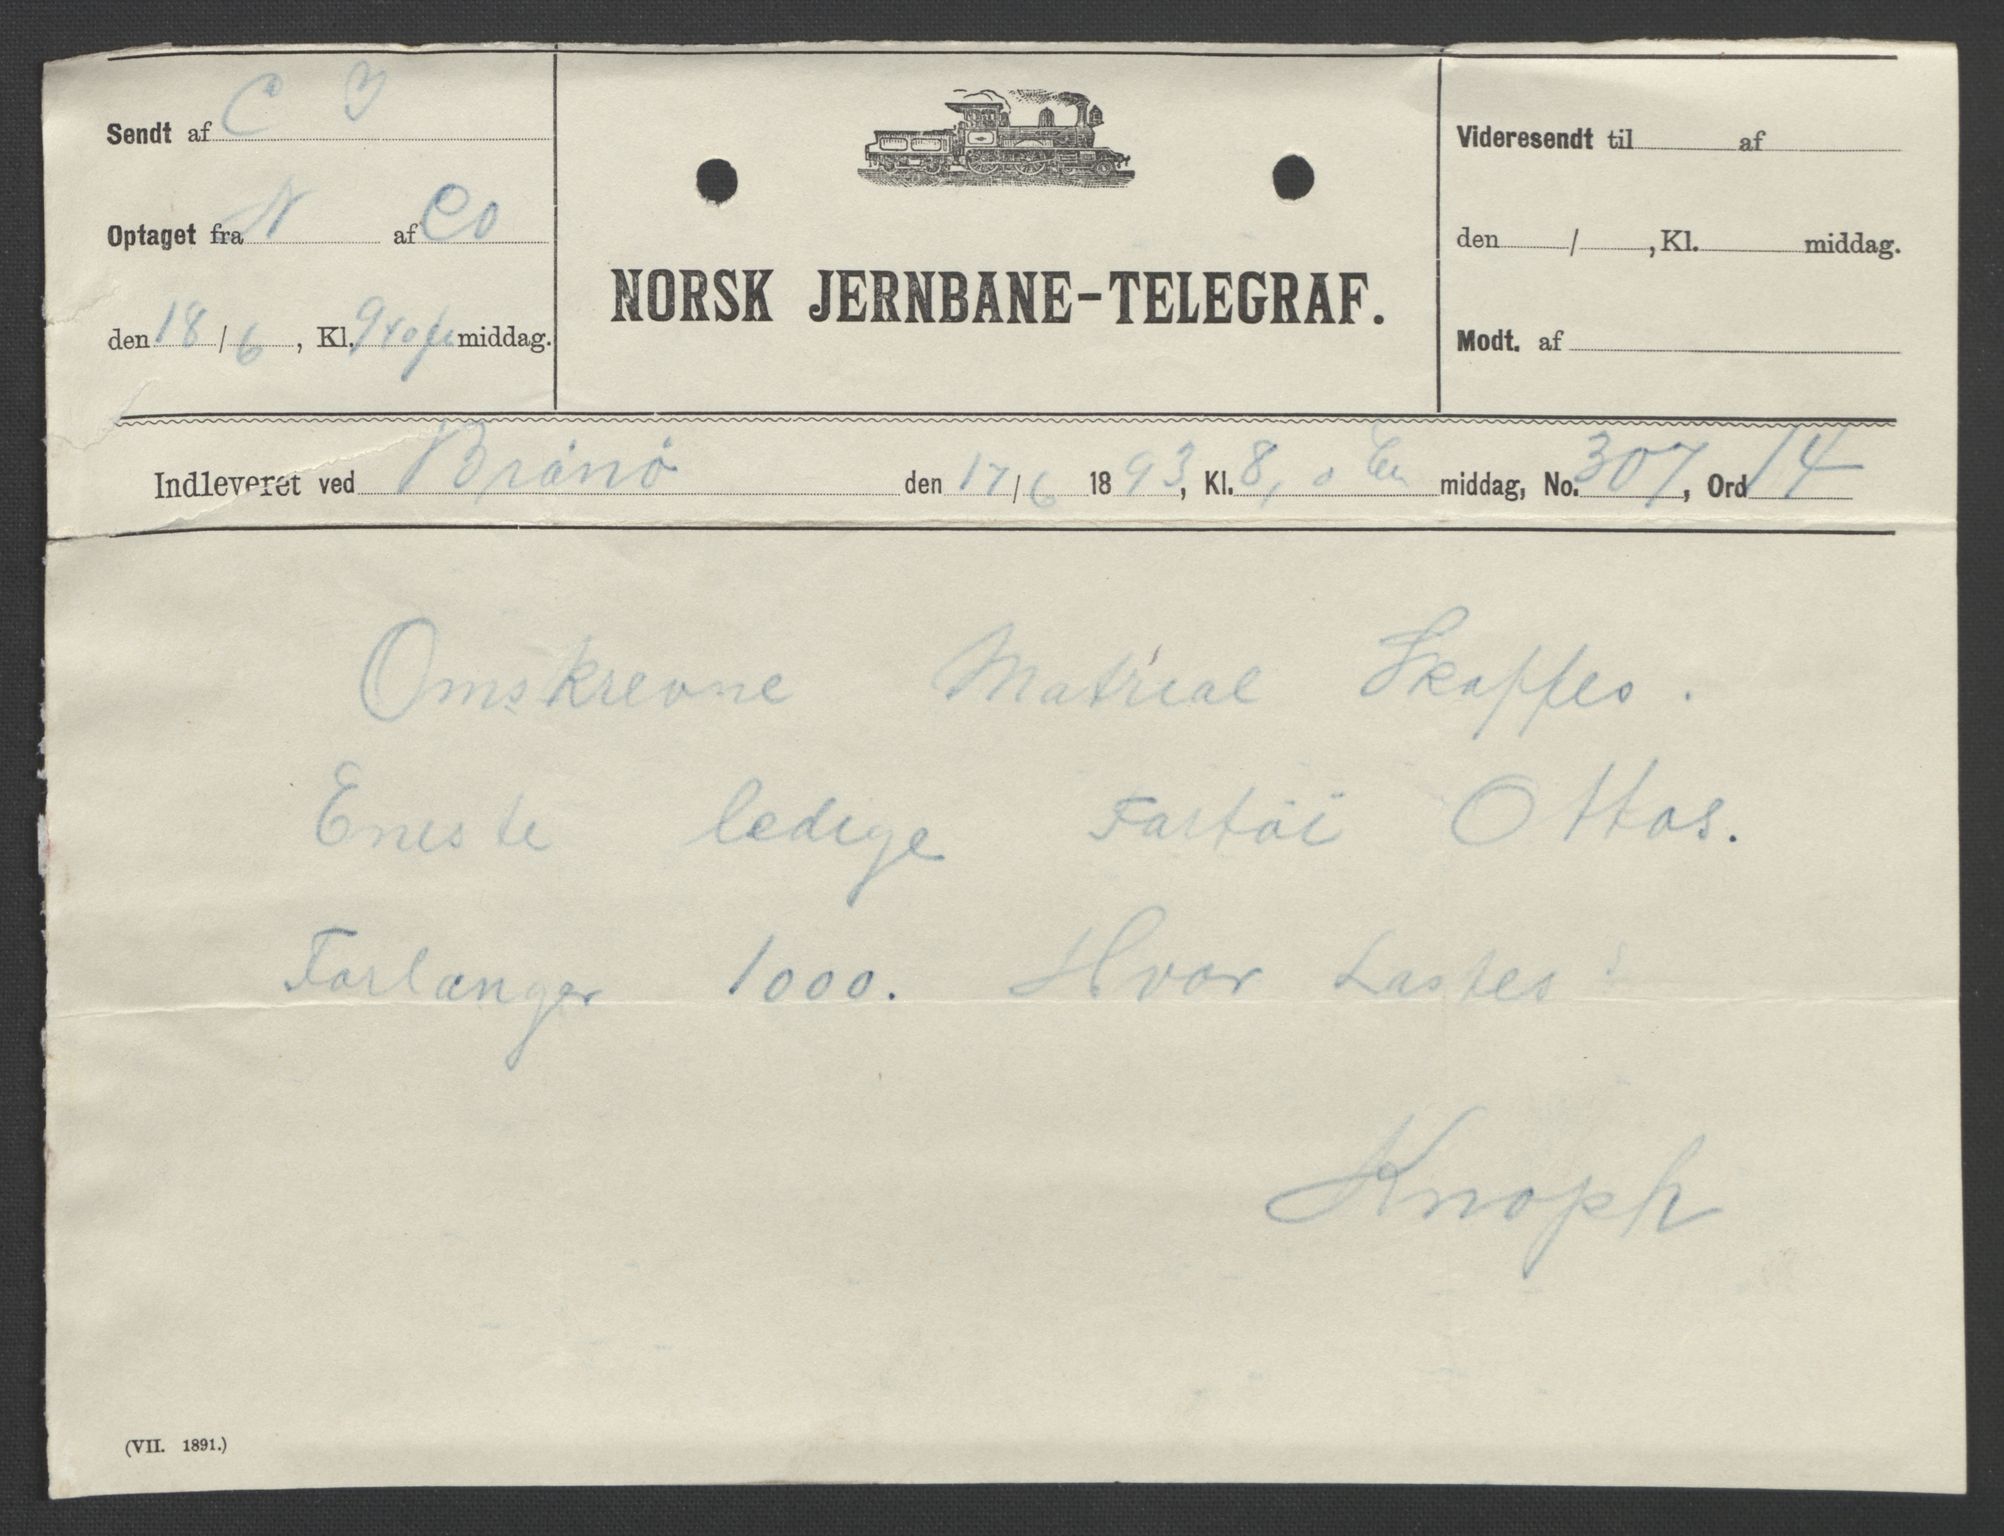 Sendt af C
Optaget fra N af Co
den 18/6, Kl. 940 fr middag.
NORSK JERNBANE-TELEGRAF.
Videresendt til af
den / , Kl. middag.
Modt. af
Indleveret ved Brönö den 17/6 1893, Kl. 8,0 Em middag, No. 307, Ord 14
Omskrevne Matrial Skaffes.
Eneste ledige Fartöi Ottos.
Forlanger 1000. Hvor Lastes?
Knoph
(VII. 1891.)